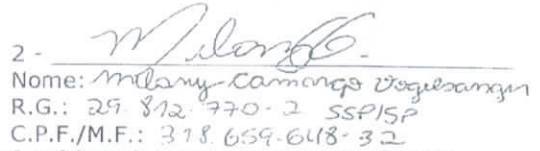 2 -
Nome: Milany Camargo Vogelsanger
R.G.: 29 812.770-2 SSP/SP
C.P.F./M.F.: 318.659.648-32